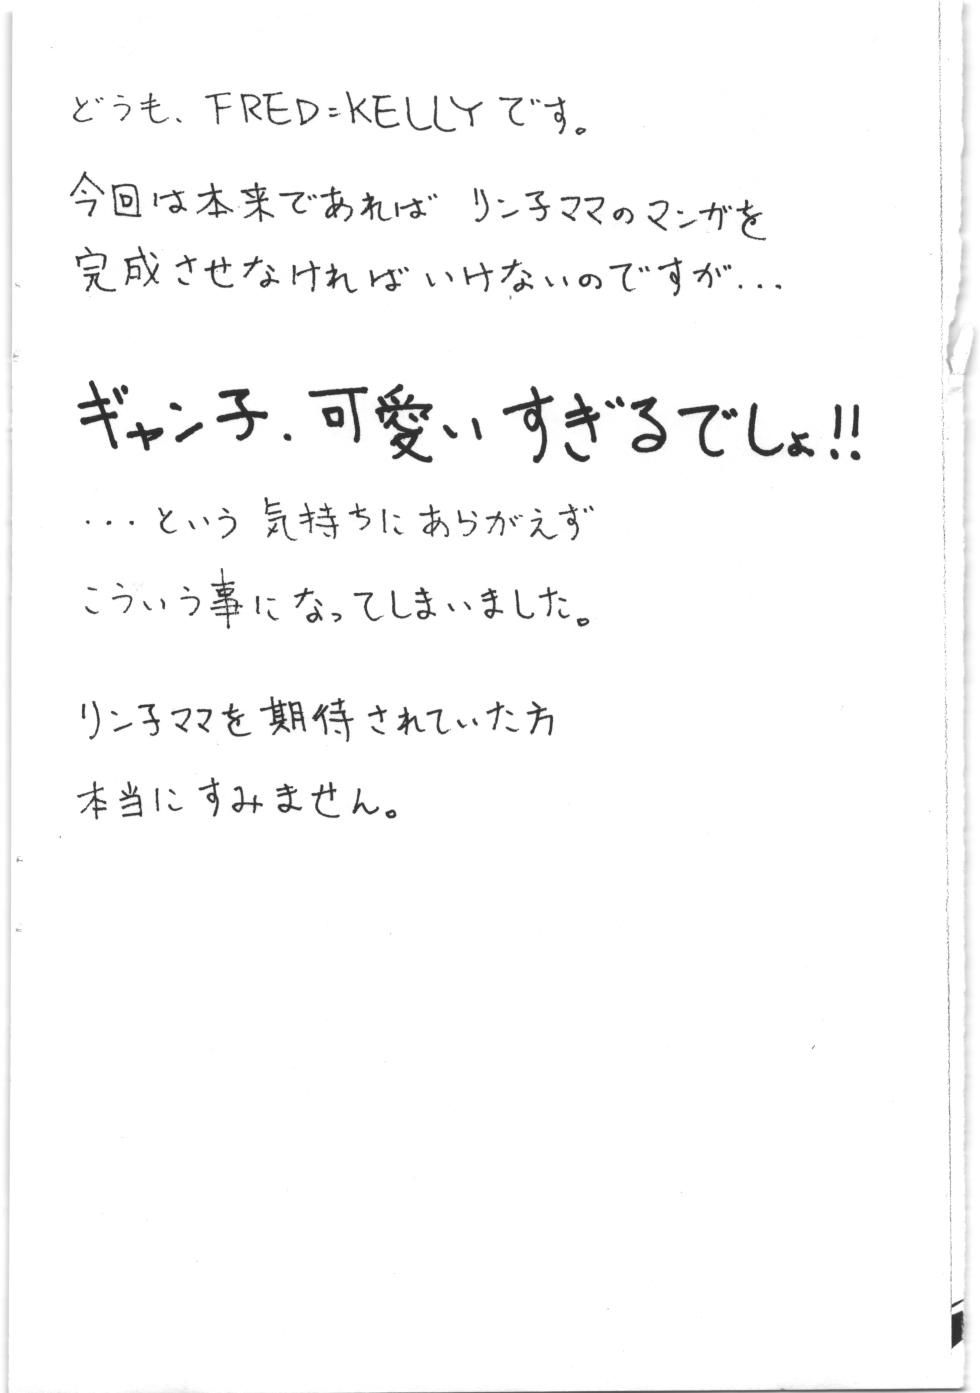 どうも、FRED=KELLYです。
今回は本来であれば リン子ママのマンガを
完成させなければいけないのですが...
ギャン子、可愛いすぎるでしょ!!
...という気持ちにあらがえず
こういう事になってしまいました。
リン子ママを期待されていた方
本当にすみません。